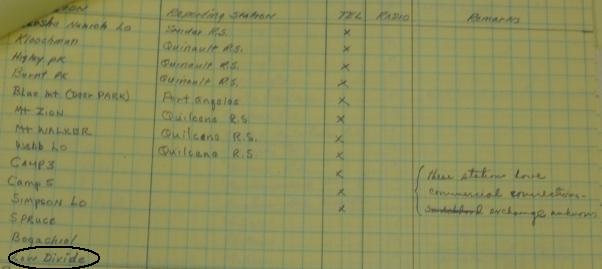 Reporting Station TEL RADIO Remarks
LO Snider R.S. x
Kloochman Quinault R.S. x
Higley PK Quinault R.S. x
Burnt PK Quinault R.S. x
Blue Mt (Deer PARK) Port Angeles x
Mt ZION Quilcene R.S. x
Mt WALKER Quilcene R.S. x
Webb LO Quilcene R.S x
CAMP 3 x these stations have
Camp 5 x commercial connections-
SIMPSON LO x exchange unknown
SPRUCE
Bogachiel
Low Divide